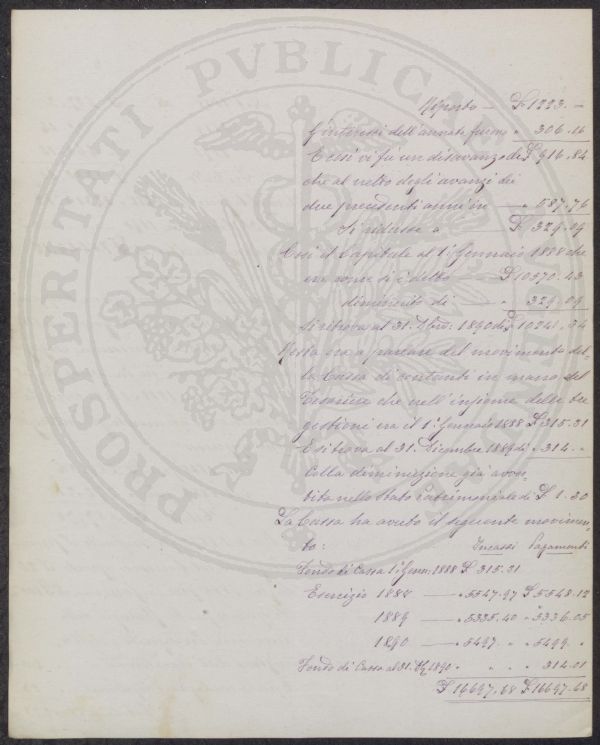 PROSPERITATI PUBLICAE
Riporto — £ 1223. —
Gl'interessi dell'annata furono " 306.16
E così vi fu un disavanzo di £ 916.84
che al netto degli avanzi dei
due precedenti anni in — " 587.76
Si riduce a £ 329.09
Così il Capitale al 1° Gennaio 1888 che
era come si è detto £ 10570.43
diminuito di — " 329.09
Si ritrova al 31. Xbre. 1890 di £ 10241.34
Resta ora a parlare del movimento del-
la Cassa di contanti in mano del
Tesoriere che nell'insieme delle tre
gestioni era il 1° Gennaio 1888 £ 315.31
E si trova al 31. Dicembre di " 314. "
Colla diminuzione già avver-
tita nello Stato Patrimoniale di £ 1.30
La Cassa ha avuto il seguente movimen-
to: Incassi Pagamenti
Fondo di Cassa 1° Genn: 1888 £ 315.31
Esercizio 1888 — " 5547.97 £ 5548.12
1889 — " 5335.40 " 5336.05
1890 — " 5497. " " 5499. "
Fondo di Cassa al 31. Xbre 1890 " " " " 314.01
£ 16697.68 £ 16697.68